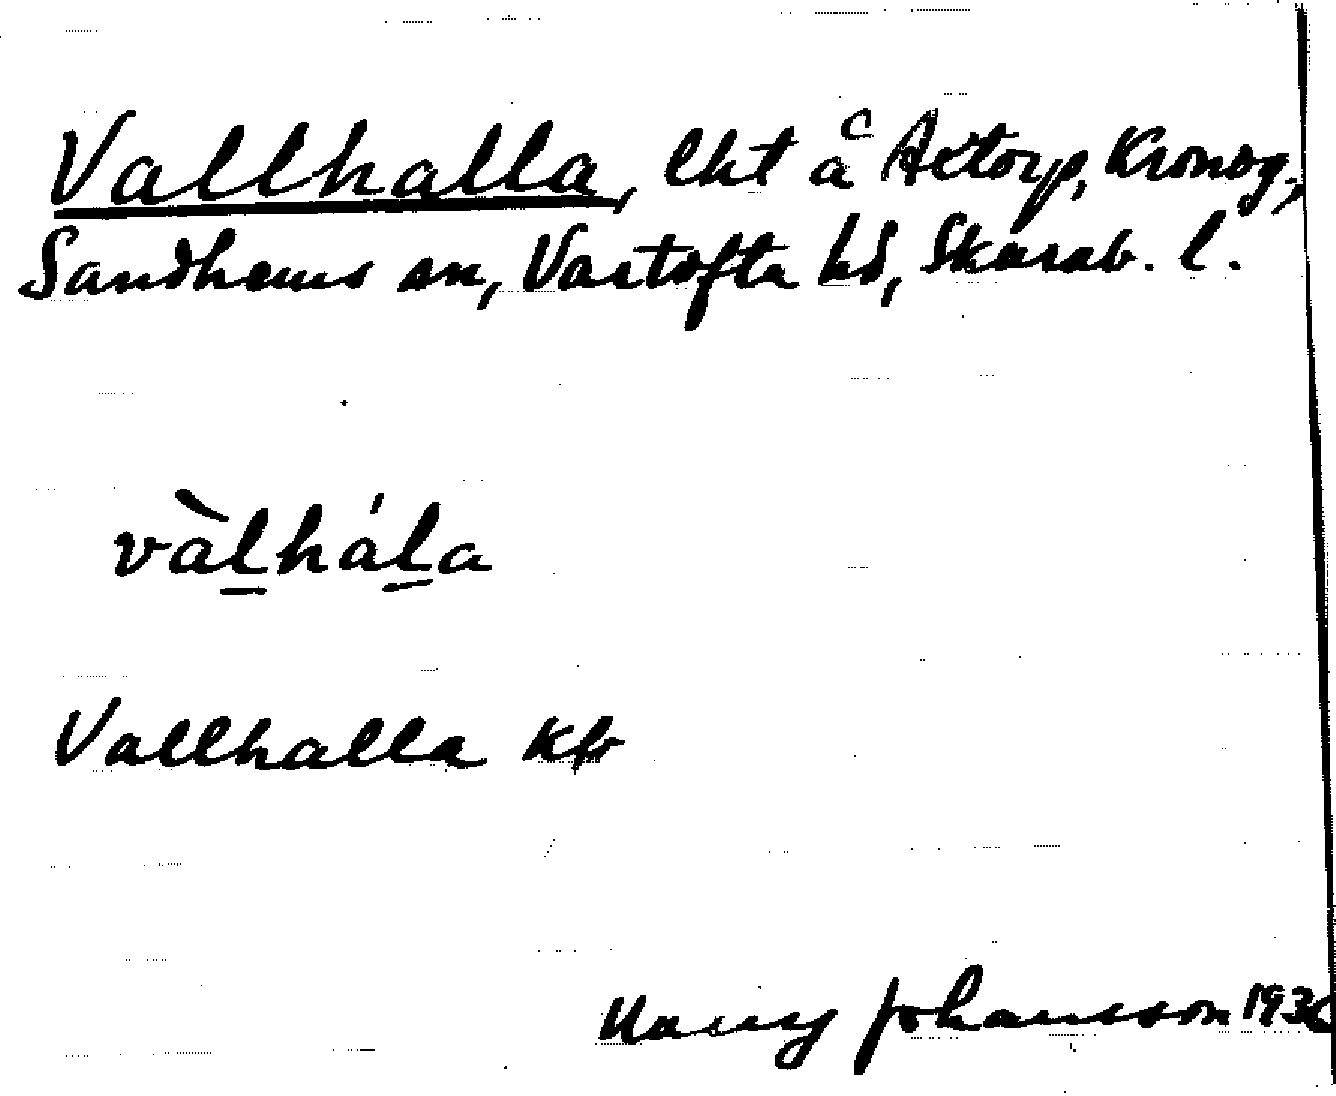 Vallhalla, lht å Axtorp, Kronog.,
Sandhems sn, Vartofta hd, Skarab. l.
vàl̲hál̲a
Vallhalla kb
Nanny Johansson 193